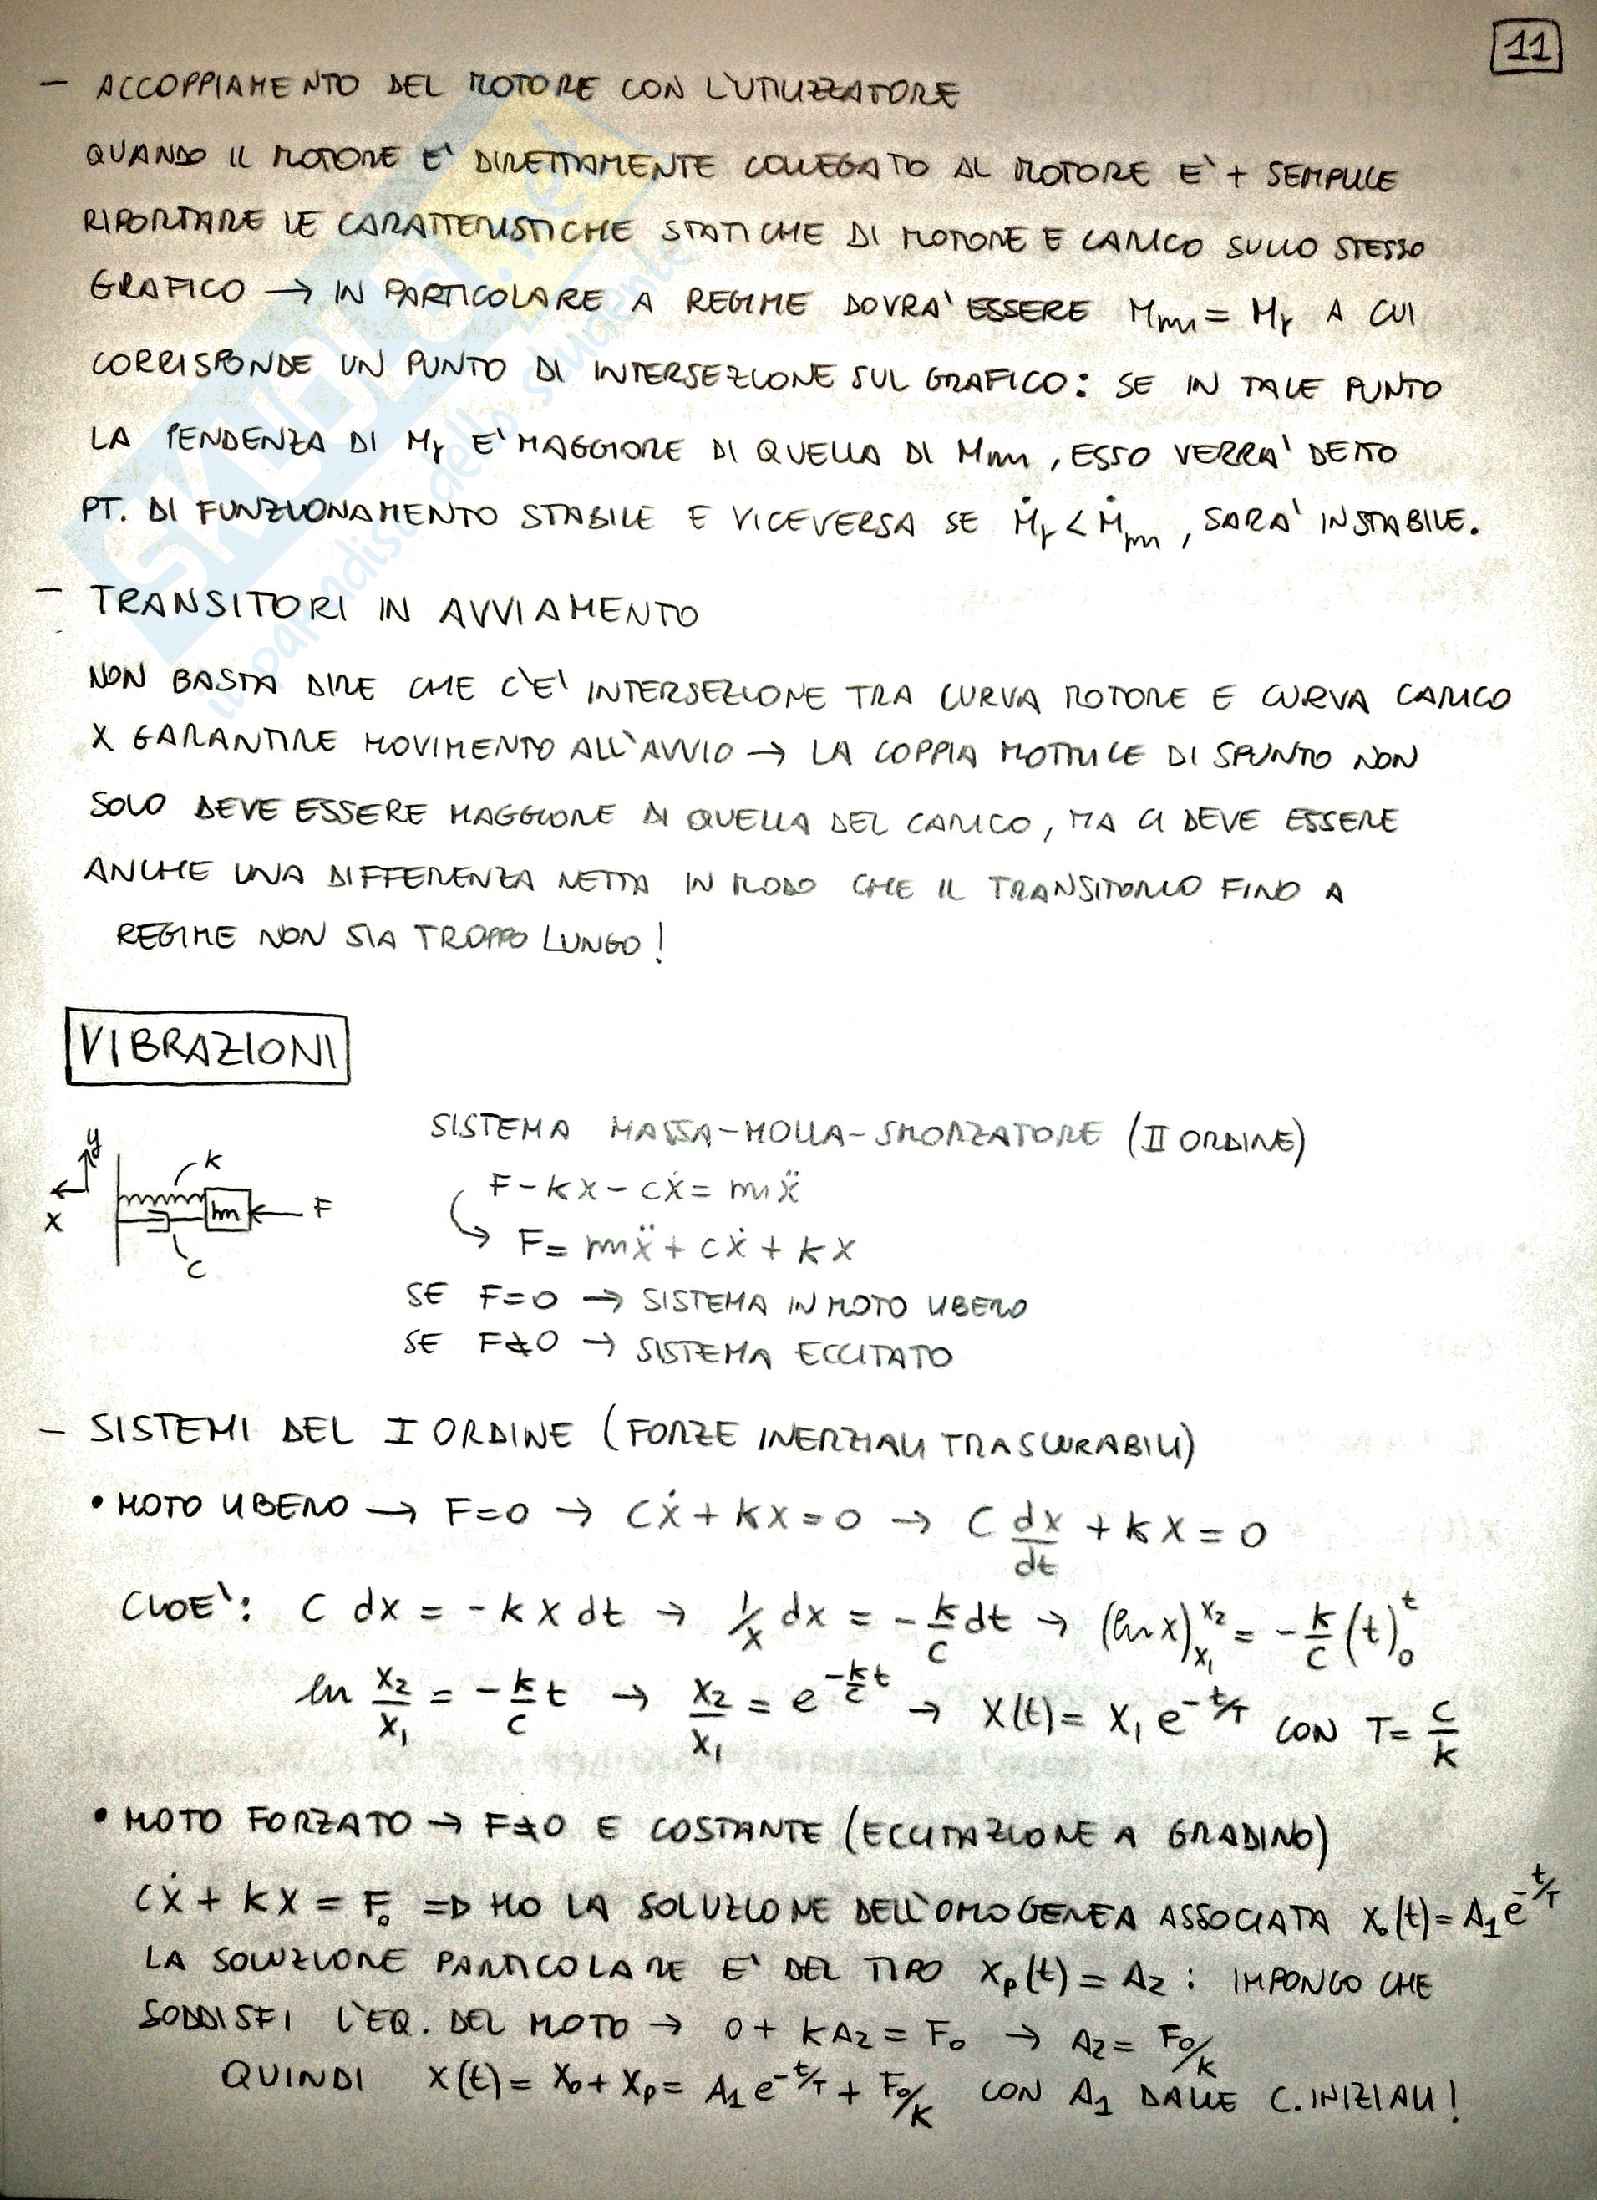 11
- ACCOPPIAMENTO DEL MOTORE CON L'UTILIZZATORE
QUANDO IL MOTORE E' DIRETTAMENTE COLLEGATO AL MOTORE E' + SEMPLICE
RIPORTARE LE CARATTERISTICHE STATICHE DI MOTORE E CARICO SULLO STESSO
GRAFICO → IN PARTICOLARE A REGIME DOVRA' ESSERE Mm = Mr A CUI
CORRISPONDE UN PUNTO DI INTERSEZIONE SUL GRAFICO: SE IN TALE PUNTO
LA PENDENZA DI Mr E' MAGGIORE DI QUELLA DI Mm, ESSO VERRA' DETTO
PT. DI FUNZIONAMENTO STABILE E VICEVERSA SE Ṁr < Ṁm, SARA' INSTABILE.
- TRANSITORI IN AVVIAMENTO
NON BASTA DIRE CHE C'E' INTERSEZIONE TRA CURVA MOTORE E CURVA CARICO
X GARANTIRE MOVIMENTO ALL'AVVIO → LA COPPIA MOTRICE DI SPUNTO NON
SOLO DEVE ESSERE MAGGIORE DI QUELLA DEL CARICO, MA CI DEVE ESSERE
ANCHE UNA DIFFERENZA NETTA IN MODO CHE IL TRANSITORIO FINO A
REGIME NON SIA TROPPO LUNGO!
VIBRAZIONI
y
x
k
m
F
c
SISTEMA MASSA-MOLLA-SMORZATORE (II ORDINE)
F - kx - cẋ = mẍ
F = mẍ + cẋ + kx
SE F=0 → SISTEMA IN MOTO LIBERO
SE F≠0 → SISTEMA ECCITATO
- SISTEMI DEL I ORDINE (FORZE INERZIALI TRASCURABILI)
• MOTO LIBERO → F=0 → cẋ + kx = 0 → c dx/dt + kx = 0
CIOE': c dx = -kx dt → 1/x dx = -k/c dt → (ln x)_{x1}^{x2} = -k/c (t)_0^t
ln x2/x1 = -k/c t → x2/x1 = e^{-k/c t} → x(t) = x1 e^{-t/T} CON T = c/k
• MOTO FORZATO → F≠0 E COSTANTE (ECCITAZIONE A GRADINO)
cẋ + kx = F0 ⇒ HO LA SOLUZIONE DELL'OMOGENEA ASSOCIATA x0(t) = A1 e^{-t/T}
LA SOLUZIONE PARTICOLARE E' DEL TIPO xp(t) = A2 : IMPONGO CHE
SODDISFI L'EQ. DEL MOTO → 0 + kA2 = F0 → A2 = F0/k
QUINDI x(t) = x0 + xp = A1 e^{-t/T} + F0/k CON A1 DALLE C. INIZIALI!
SKUOLA.net
il paradiso dello studente